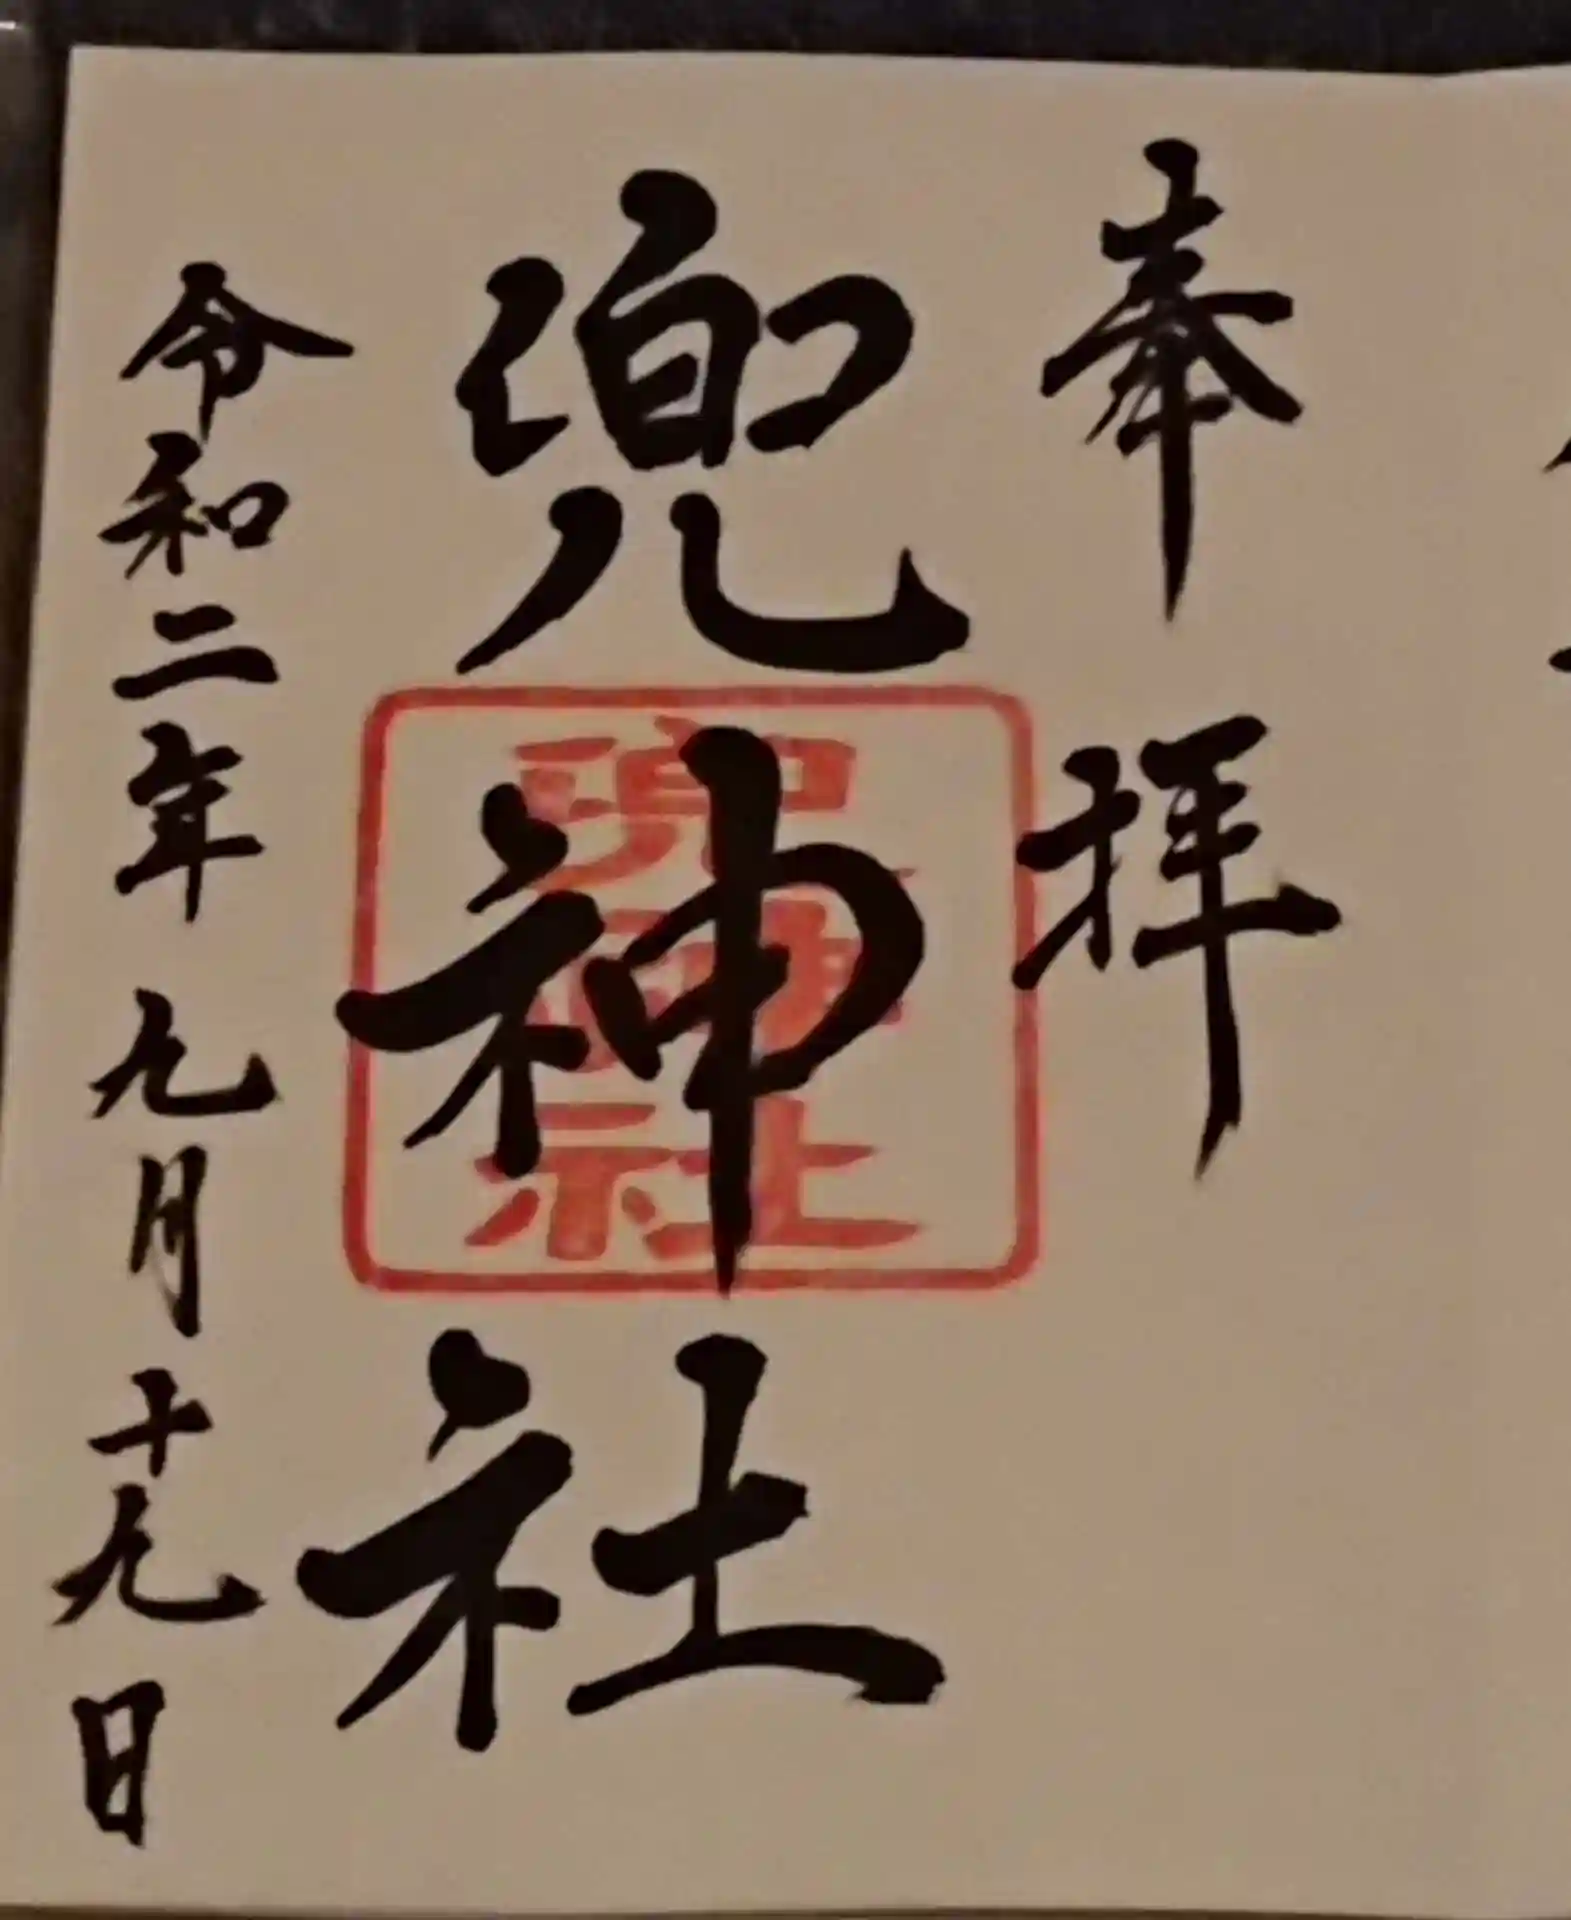 奉拝
兜神社
兜神社
令和二年九月十九日